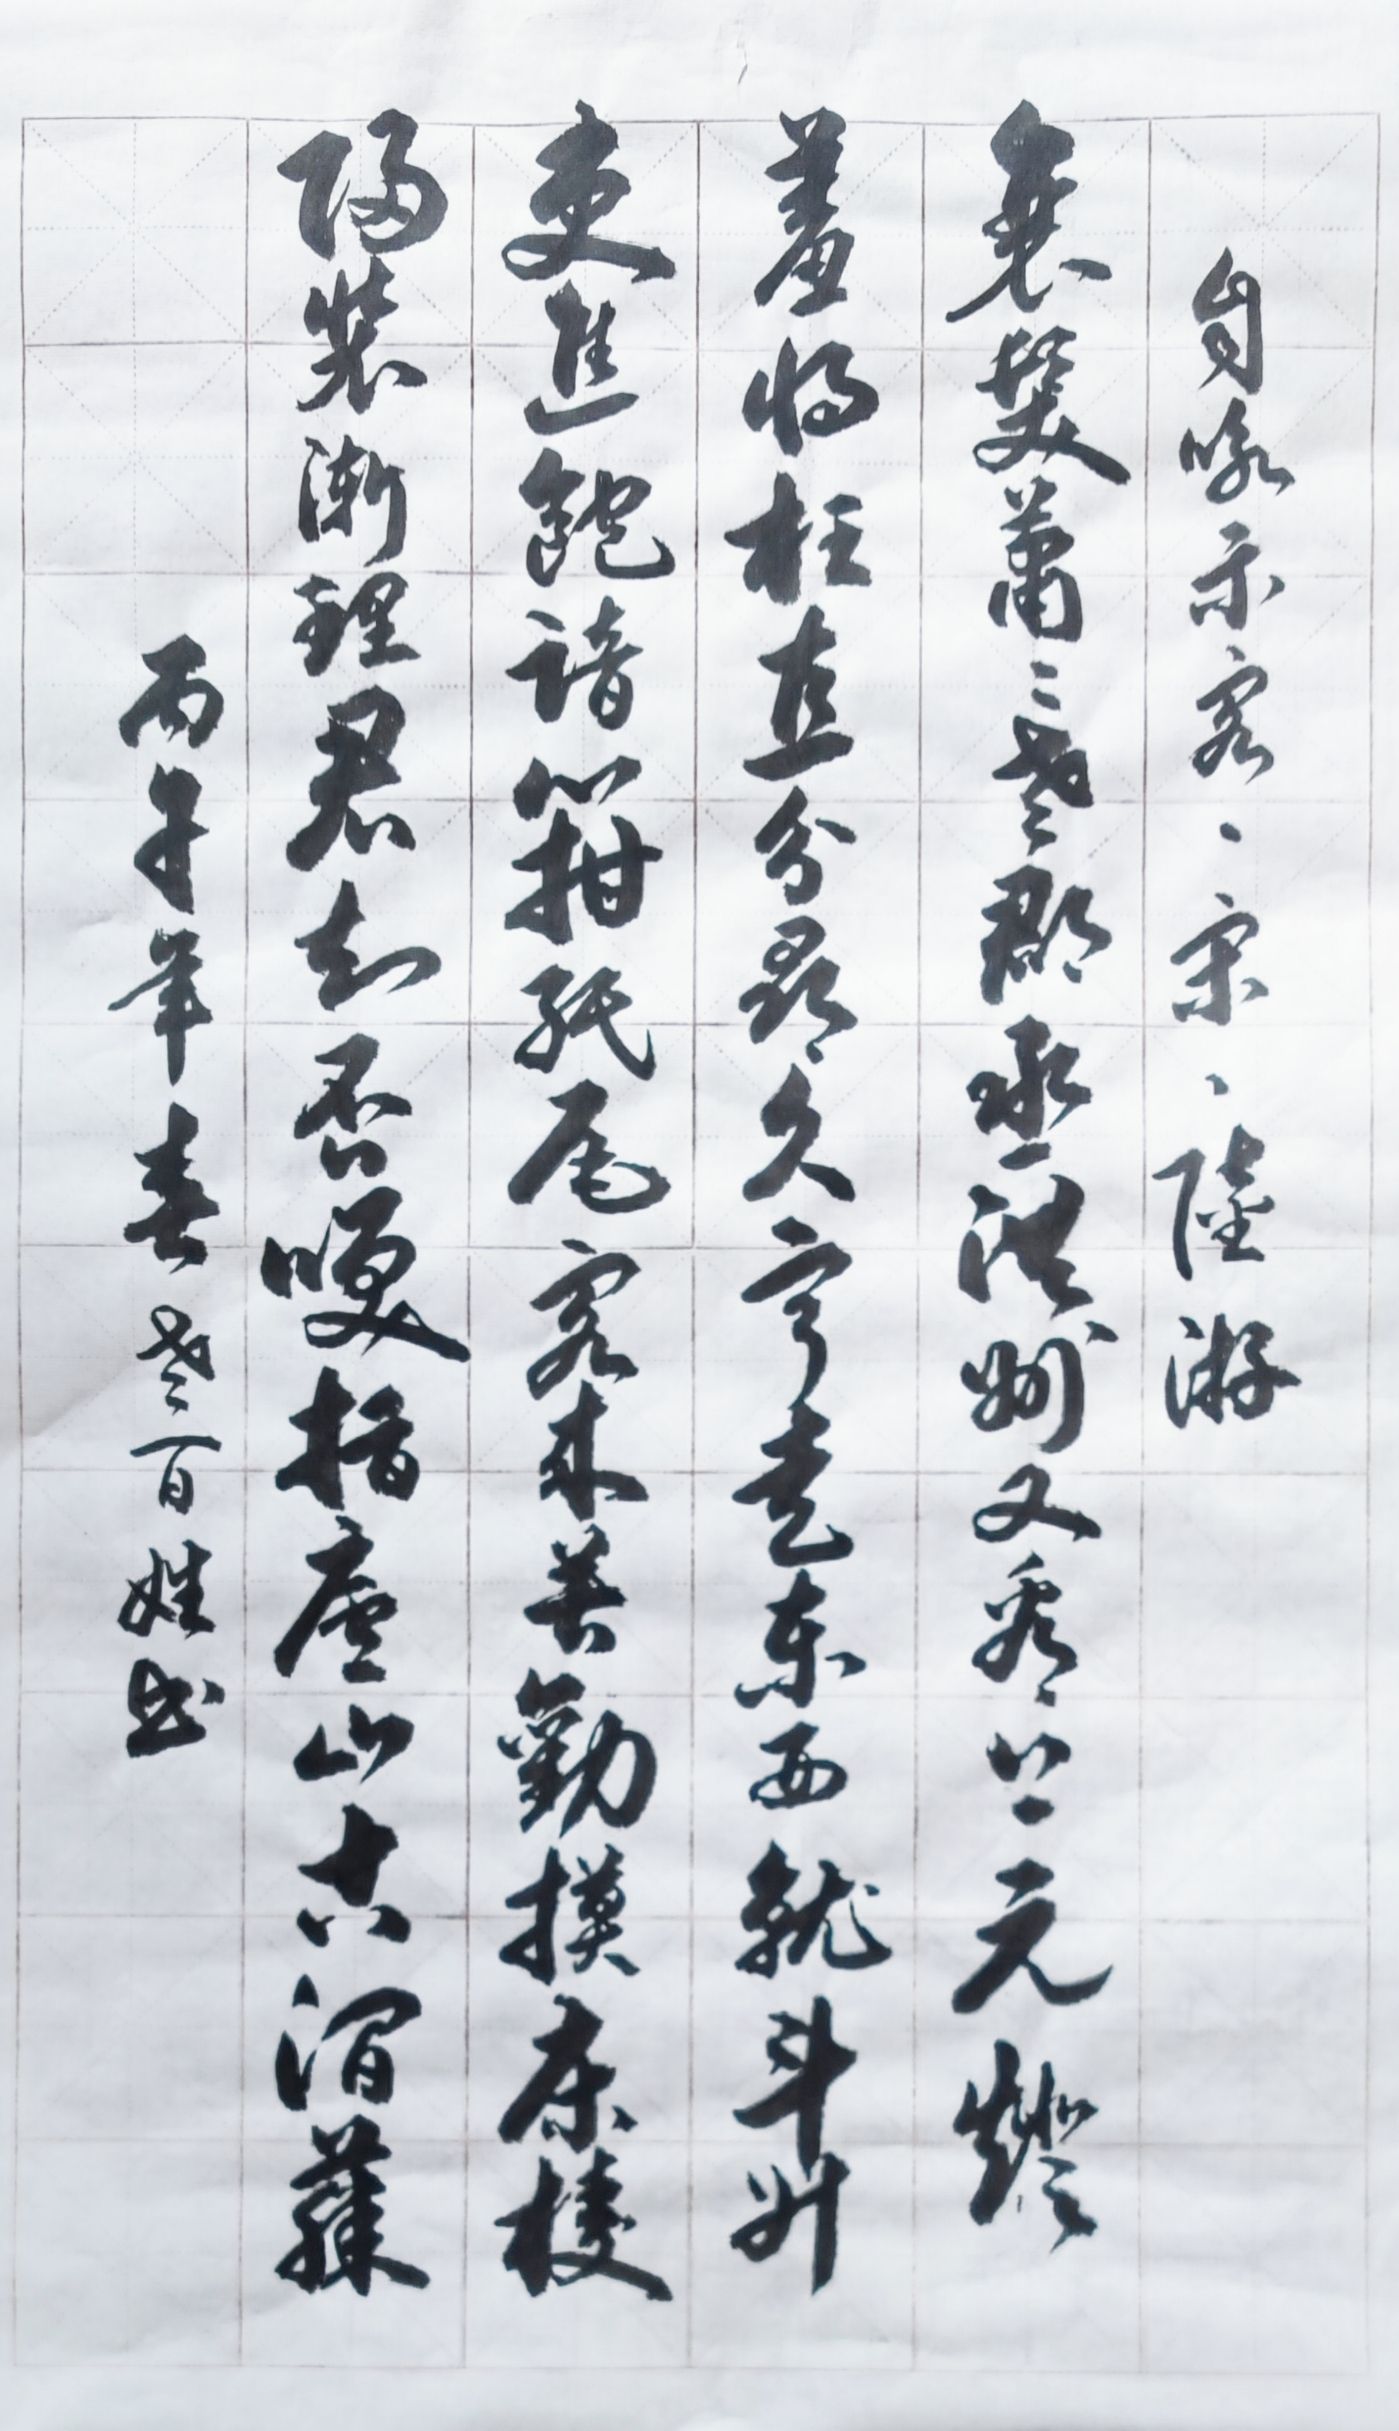 自咏示客、宋、陸游
衰髮蕭〻老郡丞洪州又看上元燈
羞將枉直分尋尺寧走東西就斗升
吏進飽諳箝紙尾客来苦勸摸床棱
歸装漸理君知否咲指廬山古澗藤
丙午年春老百姓书